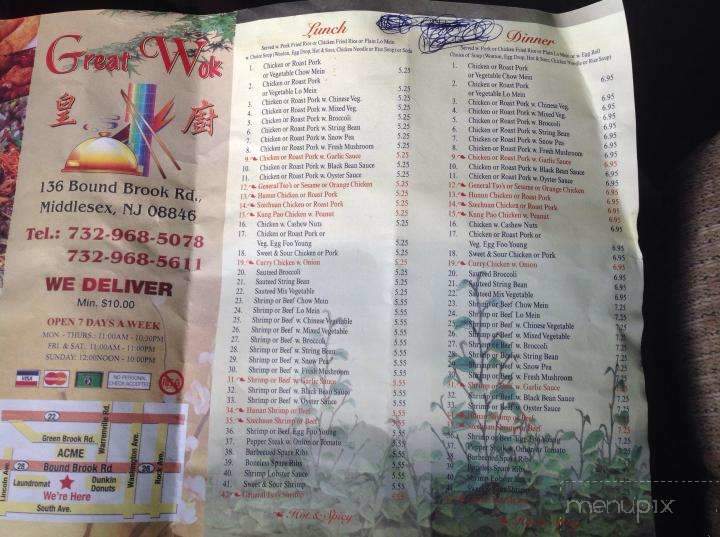 Great Wok
皇 廚
136 Bound Brook Rd.,
Middlesex, NJ 08846
Tel.: 732-968-5078
732-968-5611
WE DELIVER
Min. $10.00
OPEN 7 DAYS A WEEK
MON - THURS.: 11:00AM - 10:30PM
FRI & SAT.: 11:00AM - 11:00PM
SUNDAY: 12:00NOON - 10:00PM
VISA
NO PERSONAL
CHECK ACCEPTED
22
Green Brook Rd.
Warrenville Rd.
ACME
Washington Ave.
28 Bound Brook Rd 28
Lincoln Ave.
Rock Ave.
Laundromat
Dunkin
Donuts
We're Here
South Ave.
Lunch
Served w. Pork Fried Rice or Chicken Fried Rice or Plain Lo Mein
w. Choice Soup (Wonton, Egg Drop, Hot & Sour, Chicken Noodle or Rice Soup) or Soda
1. Chicken or Roast Pork
or Vegetable Chow Mein 5.25
2. Chicken or Roast Pork
or Vegetable Lo Mein 5.25
3. Chicken or Roast Pork w. Chinese Veg. 5.25
4. Chicken or Roast Pork w. Mixed Veg. 5.25
5. Chicken or Roast Pork w. Broccoli 5.25
6. Chicken or Roast Pork w. String Bean 5.25
7. Chicken or Roast Pork w. Snow Pea 5.25
8. Chicken or Roast Pork w. Fresh Mushroom 5.25
9. Chicken or Roast Pork w. Garlic Sauce 5.25
10. Chicken or Roast Pork w. Black Bean Sauce 5.25
11. Chicken or Roast Pork w. Oyster Sauce 5.25
12. General Tso's or Sesame or Orange Chicken 5.25
13. Hunan Chicken or Roast Pork 5.25
14. Szechuan Chicken or Roast Pork 5.25
15. Kung Pao Chicken w. Peanut 5.25
16. Chicken w. Cashew Nuts 5.25
17. Chicken or Roast Pork or
Veg. Egg Foo Young 5.25
18. Sweet & Sour Chicken or Pork 5.25
19. Curry Chicken w. Onion 5.25
20. Sauteed Broccoli 5.25
21. Sauteed String Bean 5.25
22. Sauteed Mix Vegetable 5.25
23. Shrimp or Beef Chow Mein 5.55
24. Shrimp or Beef Lo Mein 5.55
25. Shrimp or Beef w. Chinese Vegetable 5.55
26. Shrimp or Beef w. Mixed Vegetable 5.55
27. Shrimp or Beef w. Broccoli 5.55
28. Shrimp or Beef w. String Bean 5.55
29. Shrimp or Beef w. Snow Pea 5.55
30. Shrimp or Beef w. Fresh Mushroom 5.55
31. Shrimp or Beef w. Garlic Sauce 5.55
32. Shrimp or Beef w. Black Bean Sauce 5.55
33. Shrimp or Beef w. Oyster Sauce 5.55
34. Hunan Shrimp or Beef 5.55
35. Szechuan Shrimp or Beef 5.55
36. Shrimp or Beef Egg Foo Young 5.55
37. Pepper Steak w. Onion or Tomato 5.55
38. Barbecued Spare Ribs 5.55
39. Boneless Spare Ribs 5.55
40. Shrimp Lobster Sauce 5.55
41. Sweet & Sour Shrimp 5.55
42. Shrimp 5.55
Hot & Spicy
Dinner
Served w. Pork or Chicken Fried Rice or Plain Lo Mein w. Egg Roll
Choice of Soup (Wonton, Egg Drop, Hot & Sour, Chicken Noodle or Rice Soup)
1. Chicken or Roast Pork
or Vegetable Chow Mein 6.95
2. Chicken or Roast Pork
or Vegetable Lo Mein 6.95
3. Chicken or Roast Pork w. Chinese Veg. 6.95
4. Chicken or Roast Pork w. Mixed Veg. 6.95
5. Chicken or Roast Pork w. Broccoli 6.95
6. Chicken or Roast Pork w. String Bean 6.95
7. Chicken or Roast Pork w. Snow Pea 6.95
8. Chicken or Roast Pork w. Fresh Mushroom 6.95
9. Chicken or Roast Pork w. Garlic Sauce 6.95
10. Chicken or Roast Pork w. Black Bean Sauce 6.95
11. Chicken or Roast Pork w. Oyster Sauce 6.95
12. General Tso's or Sesame or Orange Chicken 6.95
13. Hunan Chicken or Roast Pork 6.95
14. Szechuan Chicken or Roast Pork 6.95
15. Kung Pao Chicken w. Peanut 6.95
16. Chicken w. Cashew Nuts 6.95
17. Chicken or Roast Pork or
Veg. Egg Foo Young 6.95
18. Sweet & Sour Chicken or Pork 6.95
19. Curry Chicken w. Onion 6.95
20. Sauteed Broccoli 6.95
21. Sauteed String Bean 6.95
22. Sauteed Mix Vegetable 6.95
23. Shrimp or Beef Chow Mein 7.25
24. Shrimp or Beef Lo Mein 7.25
25. Shrimp or Beef w. Chinese Vegetable 7.25
26. Shrimp or Beef w. Mixed Vegetable 7.25
27. Shrimp or Beef w. Broccoli 7.25
28. Shrimp or Beef w. String Bean 7.25
29. Shrimp or Beef w. Snow Pea 7.25
30. Shrimp or Beef w. Fresh Mushroom 7.25
31. Shrimp or Beef w. Garlic Sauce 7.25
32. Shrimp or Beef w. Black Bean Sauce 7.25
Shrimp or Beef w. Oyster Sauce 7.25
Shrimp or Beef 7.25
Szechuan Shrimp or Beef 7.25
Shrimp or Beef Egg Foo Young 7.25
Pepper Steak w. Onion or Tomato 7.25
Barbecued Spare Ribs 7.25
Boneless Spare Ribs
Shrimp Lobster
menupix